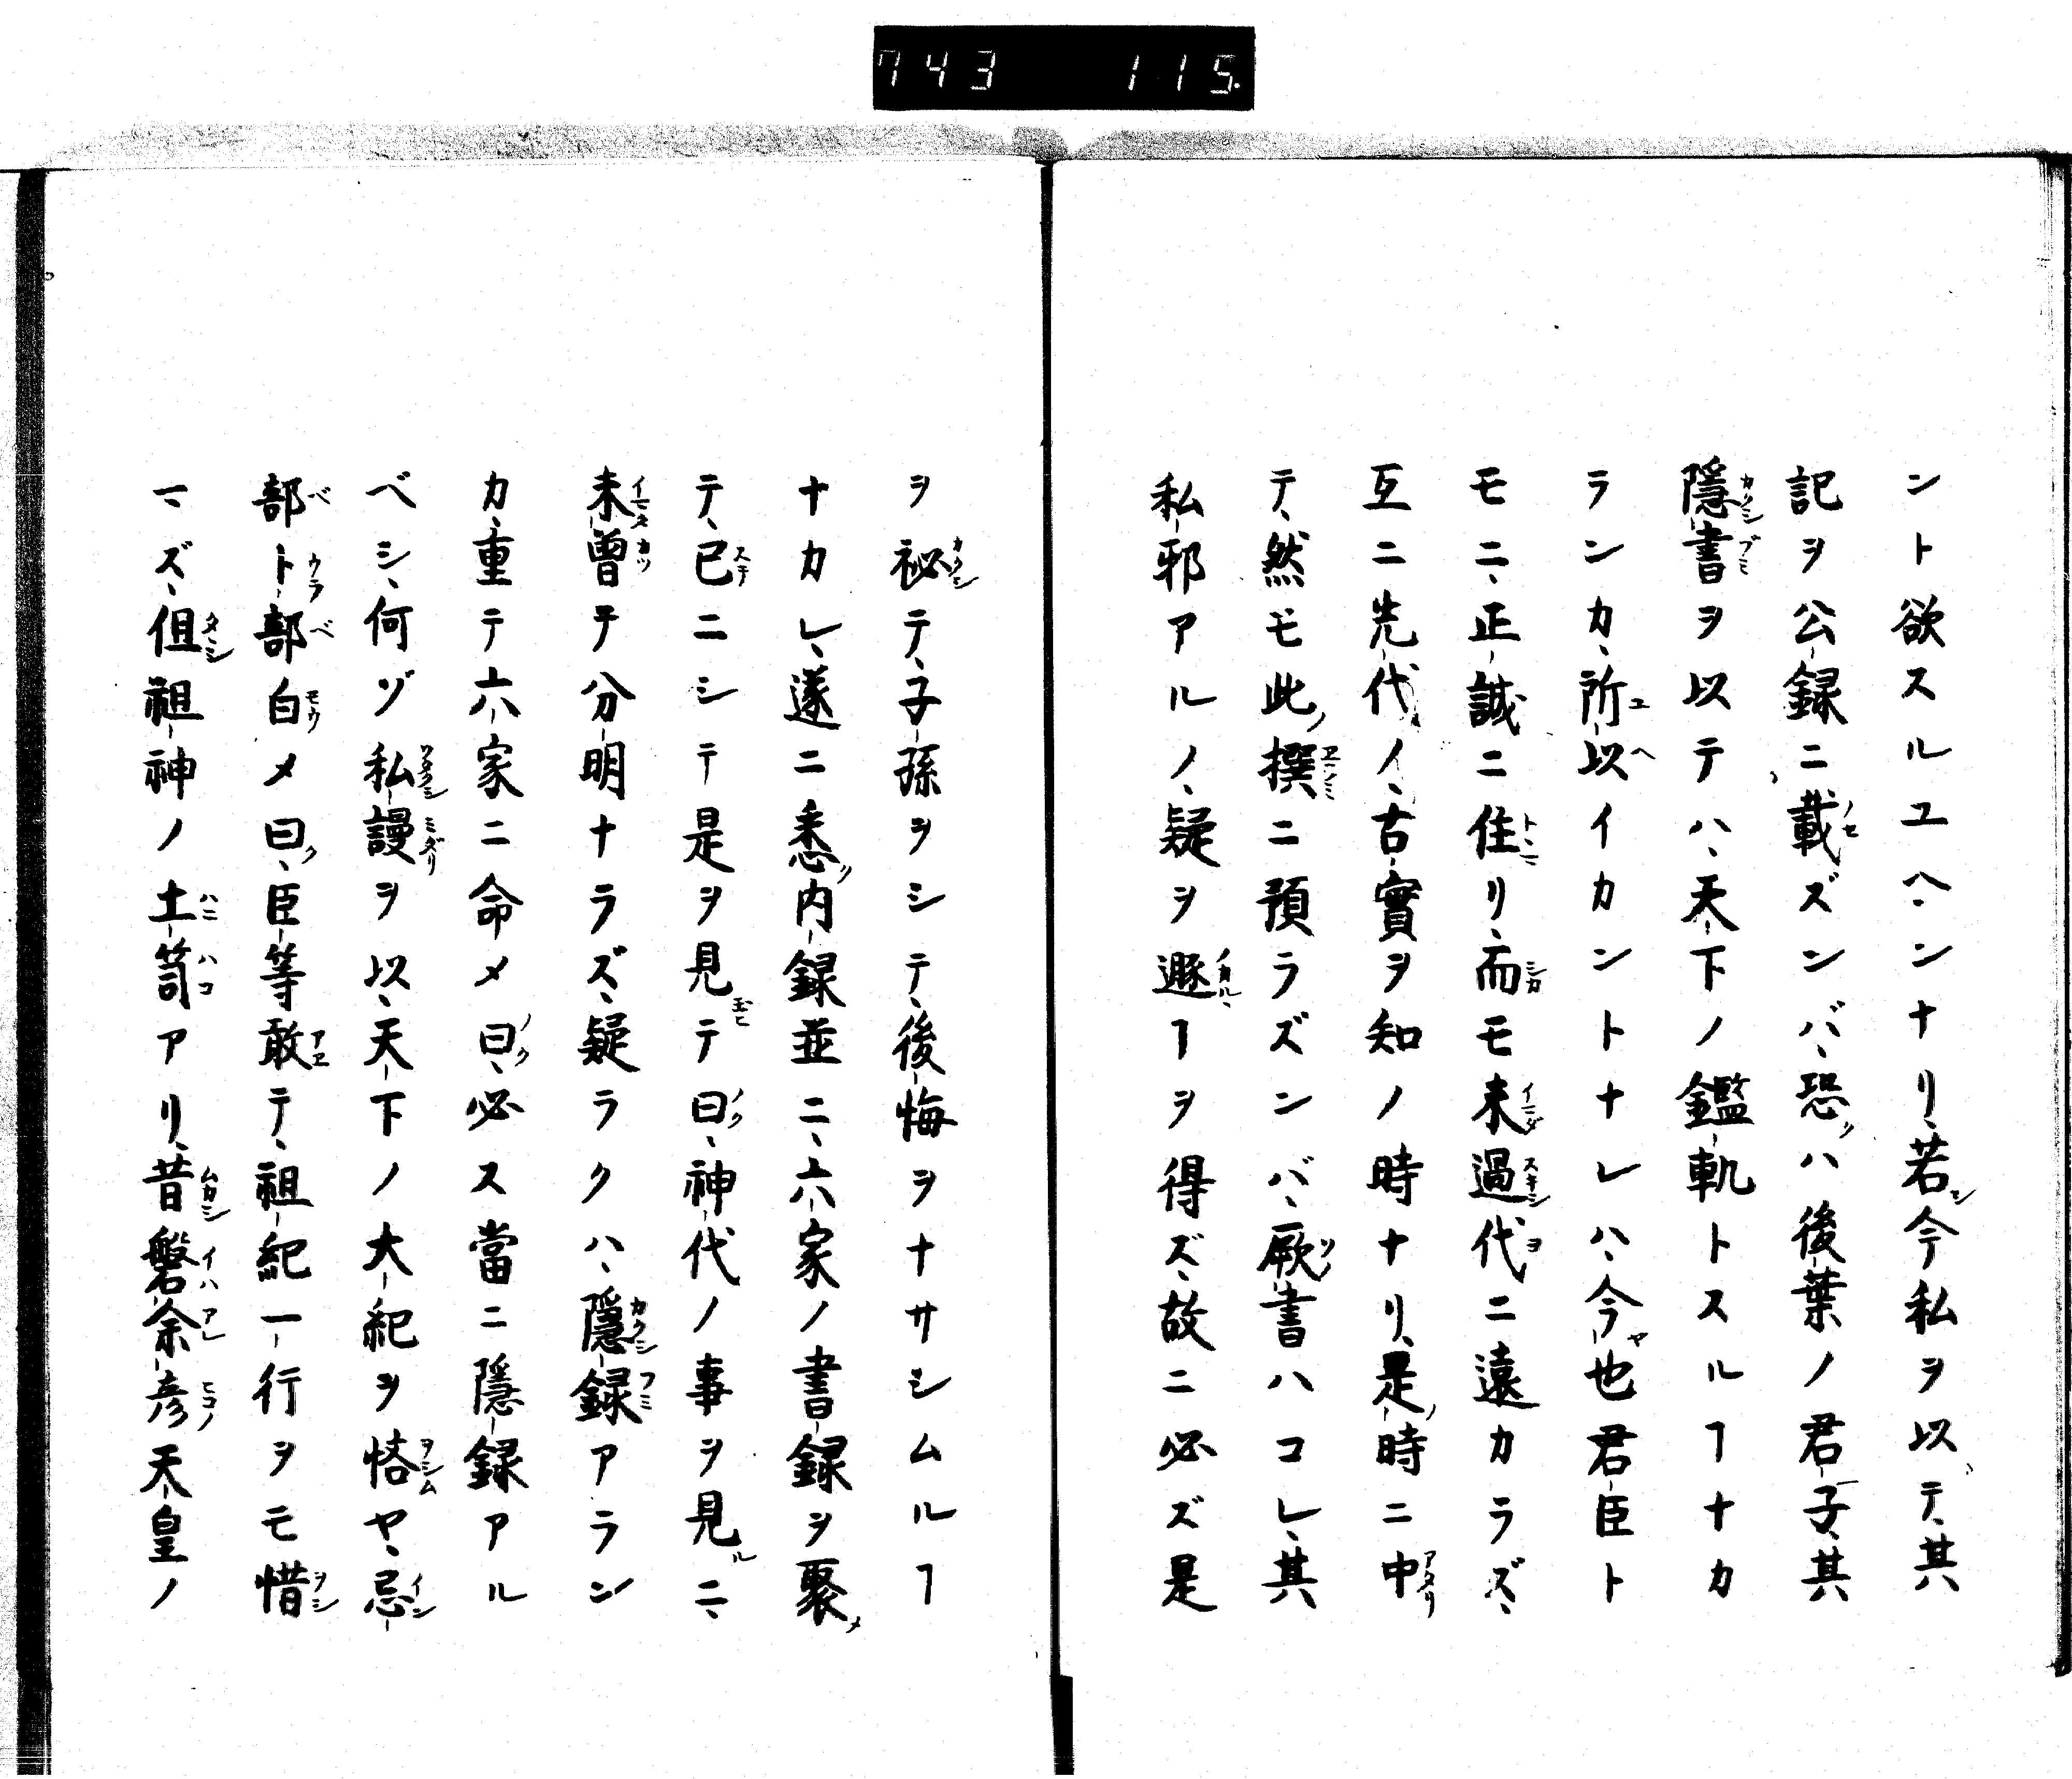 743 115.
ント欲スルユヘンナリ、若シ今私ヲ以テ、其
記ヲ公録ニ載ズンバ、恐ハ後葉ノ君子、其
隱書ヲ以テハ、天下ノ鑑軌トスルヿナカ
ランカ、所以イカントナレハ、今也君臣ト
モニ、正誠ニ住リ、而モ未過代ニ遠カラズ、
互ニ先代ノ、古實ヲ知ノ時ナリ、是時ニ中
テ、然モ此ノ撰ニ預ラズンバ、厥書ハコレ、其
私邪アルノ、疑ヲ遯ヿヲ得ズ、故ニ必ズ是
ヲ祕テ、子孫ヲシテ、後悔ヲナサシムルヿ
ナカレ、遂ニ悉ク内録並ニ、六家ノ書録ヲ聚メ
テ、已ニシテ是ヲ見テ曰、神代ノ事ヲ見ルニ、
未曾テ分明ナラズ、疑ラクハ、隱録アラン
カ、重テ六家ニ命メ曰、必ス當ニ隱録アル
ベシ、何ゾ私謾ヲ以、天下ノ大紀ヲ悋ヤ、忌
部卜部白メ曰、臣等敢テ、祖紀一行ヲモ惜
マズ、但祖神ノ土笥アリ、昔磐余彦天皇ノ